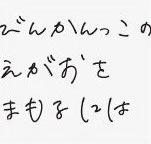 びんかんっこの
えがおを
まもるには